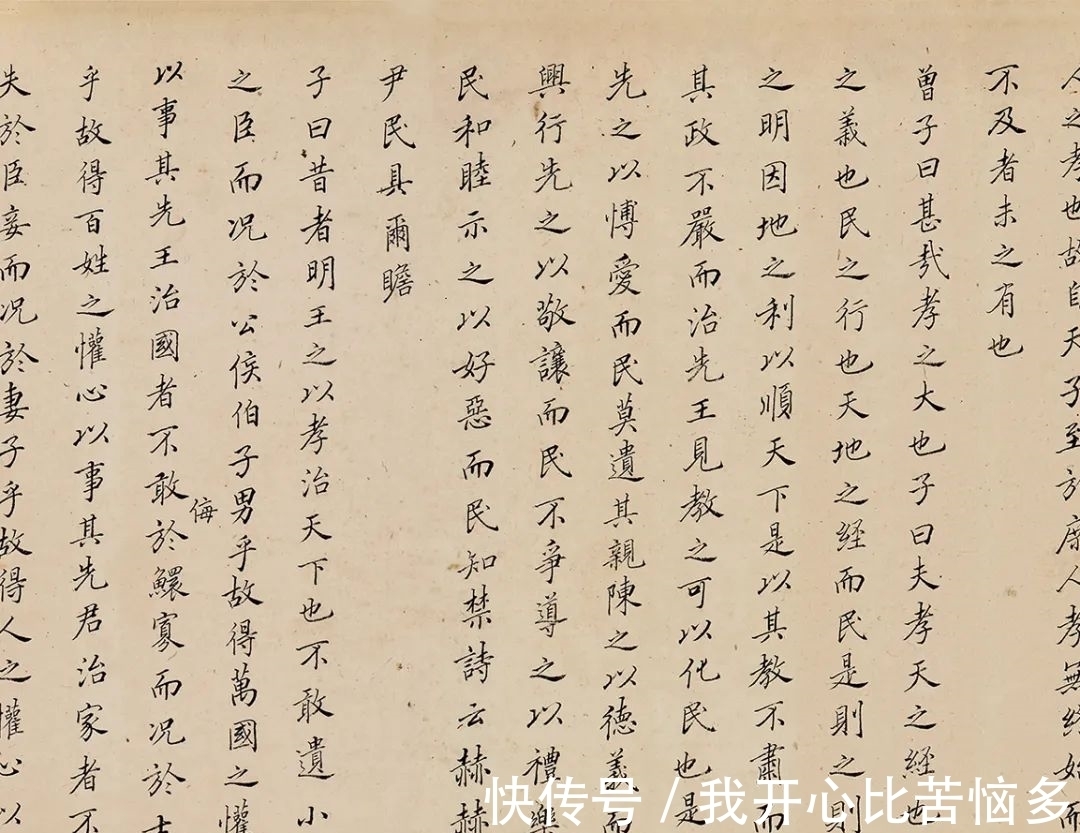 人之孝也故自天子至於庶人孝無終始而
不及者未之有也
曾子曰甚哉孝之大也子曰夫孝天之経也
之義也民之行也天地之経而民是則之則
之明因地之利以順天下是以其教不肅而
其政不嚴而治先王見教之可以化民也是
先之以愽愛而民莫遺其親陳之以德義而
興行先之以敬讓而民不爭導之以禮樂
民和睦示之以好惡而民知禁詩云赫赫
尹民具爾瞻
子曰昔者明王之以孝治天下也不敢遺小
之臣而况於公侯伯子男乎故得萬國之懽
以事其先王治國者不敢侮於鰥寡而况於士
乎故得百姓之懽心以事其先君治家者不
失於臣妾而况於妻子乎故得人之懽心以
快传号/我开心比苦恼多